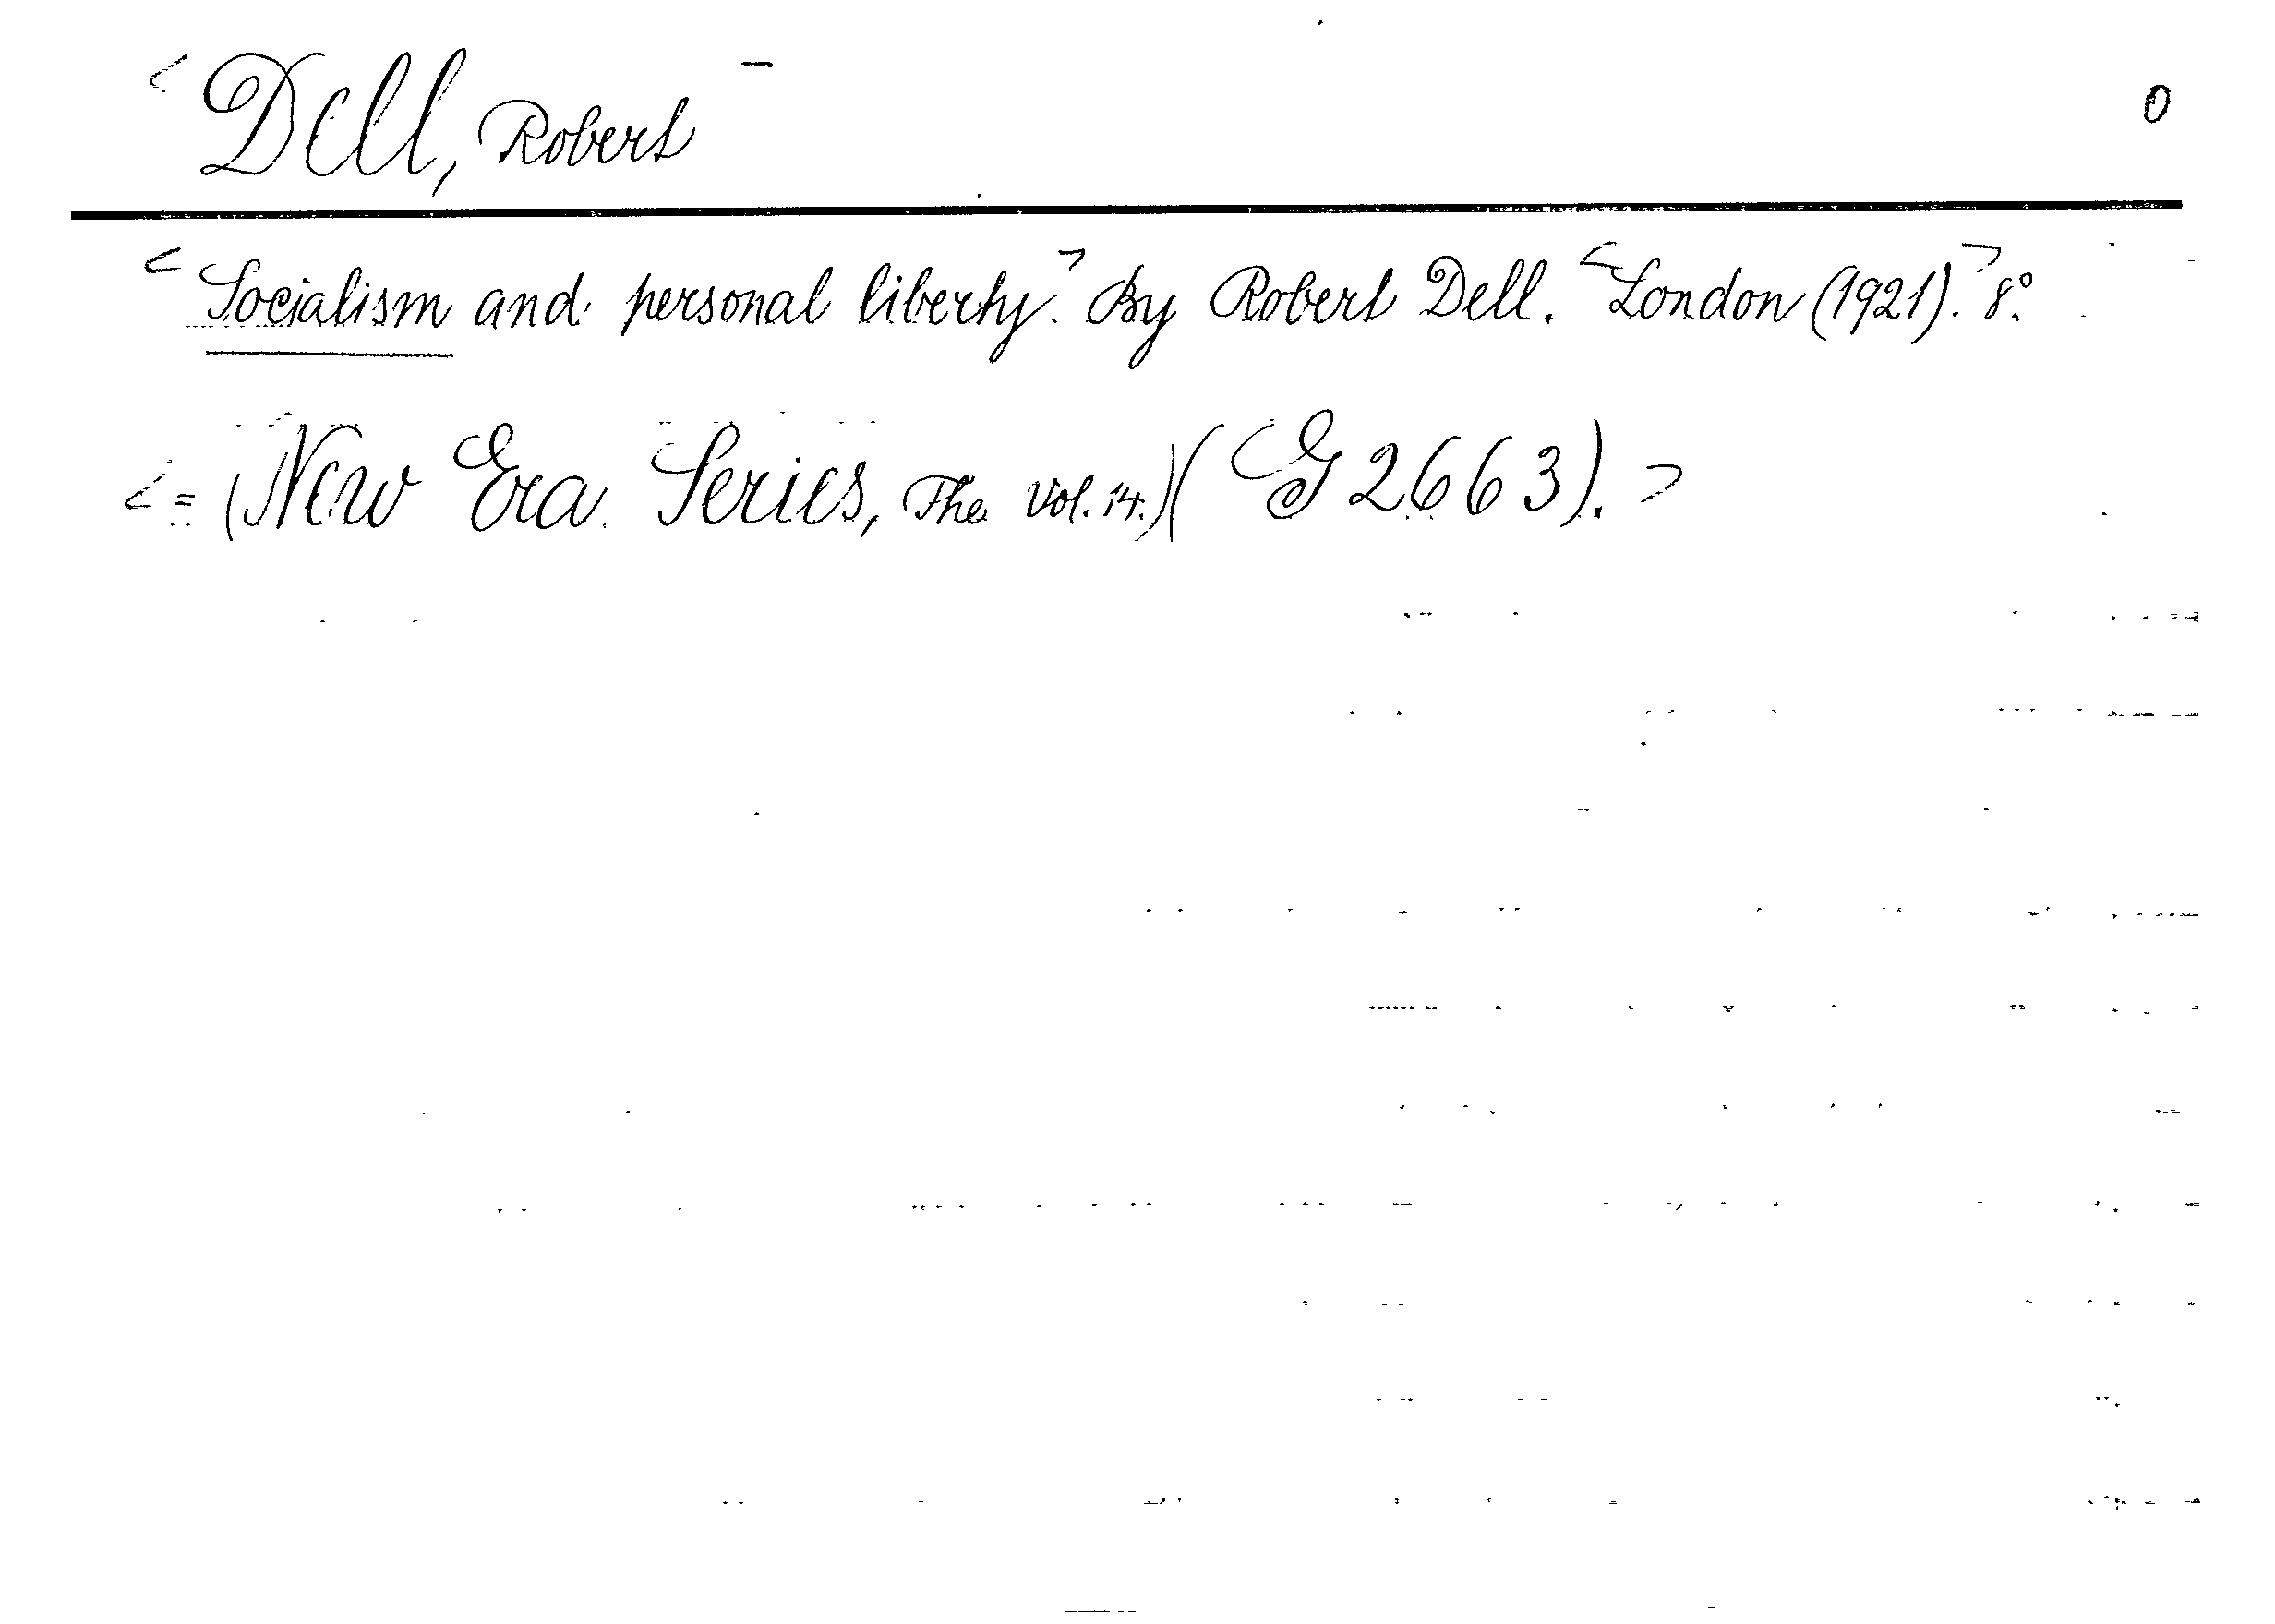 < Dell, Robert — 0
< Socialism and personal liberty.> By Robert Dell. <London (1921).> 8°.
< = (New Era Series, The Vol. 14.) (G 2663). >